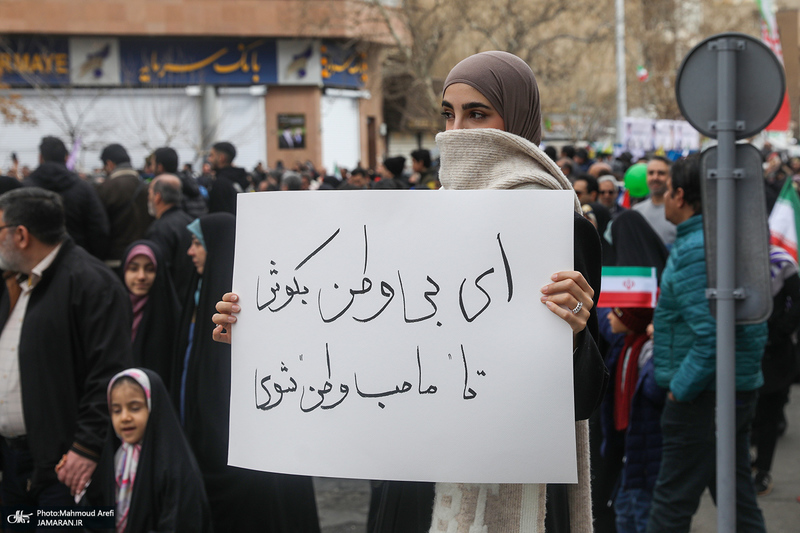 RMAYE
بانک سرمایه
ای بی وطن بکوش
تا صاحب وطن شوی
Photo:Mahmoud Arefi
JAMARAN.IR